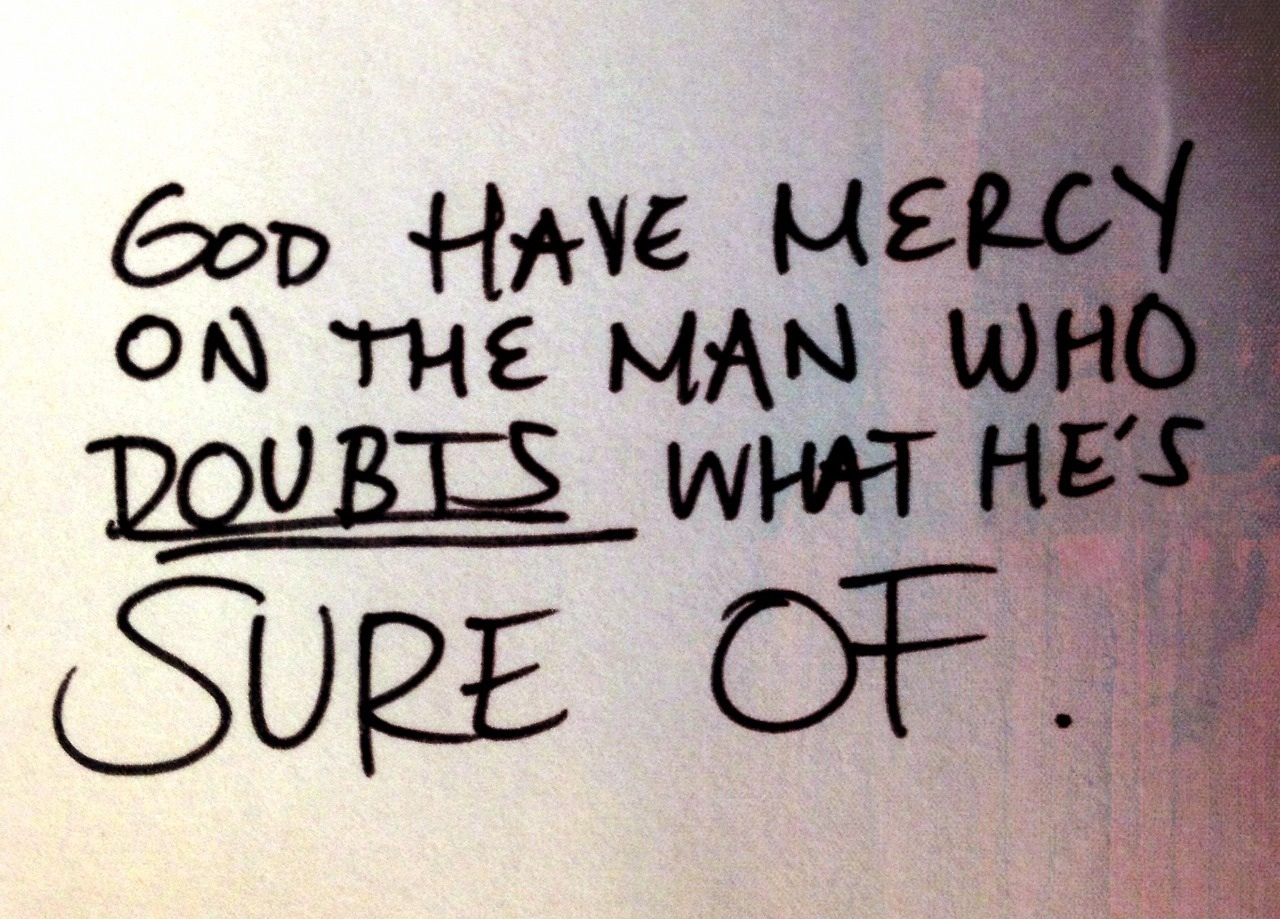 GOD HAVE MERCY
ON THE MAN WHO
DOUBTS WHAT HE'S
SURE OF.